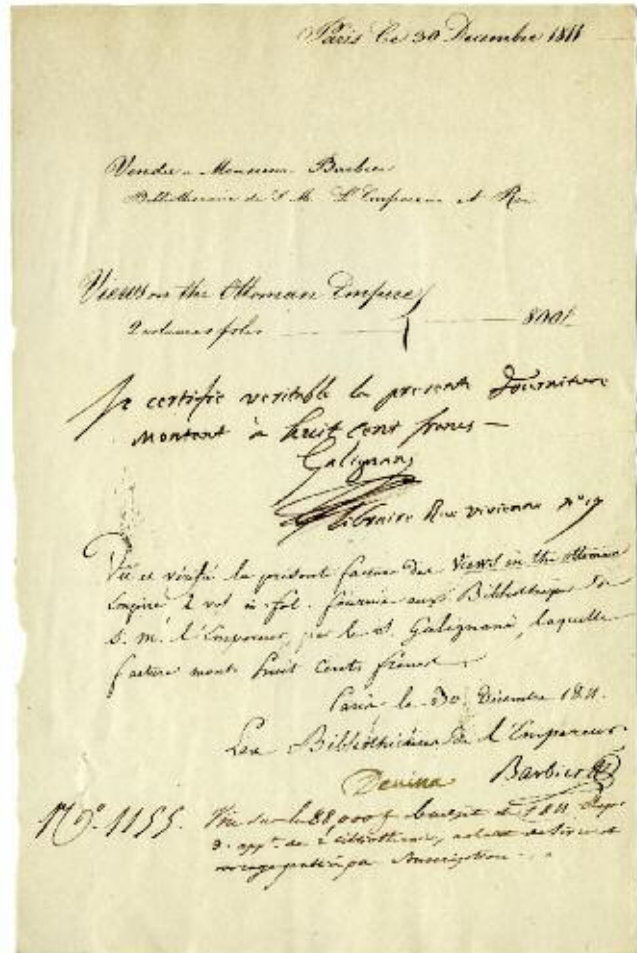 Paris Ce 30 Decembre 1811
Vendu a Monsieur Barbier
Bibliothecaire de S. M. L'Empereur et Roi
Views on the Ottoman Empire
2 volumes folio 800f
Je certifie veritable la presente fourniture
montant à huit cent francs
Galignani
Libraire Rue Vivienne N° 17
Vû et vérifié la présente facture des Views in the ottoman
Empire 2 vol in fol. fournie aux Bibliothèques de
S. M. l'Empereur, par le S. Galignani, laquelle
facture monte huit cents francs
Paris le 30 Décembre 1811.
Les Bibliothécaires de l'Empereur
Denina Barbier
N°. 1155. 88,000 f budget de 1811
achat de livres et
souscription